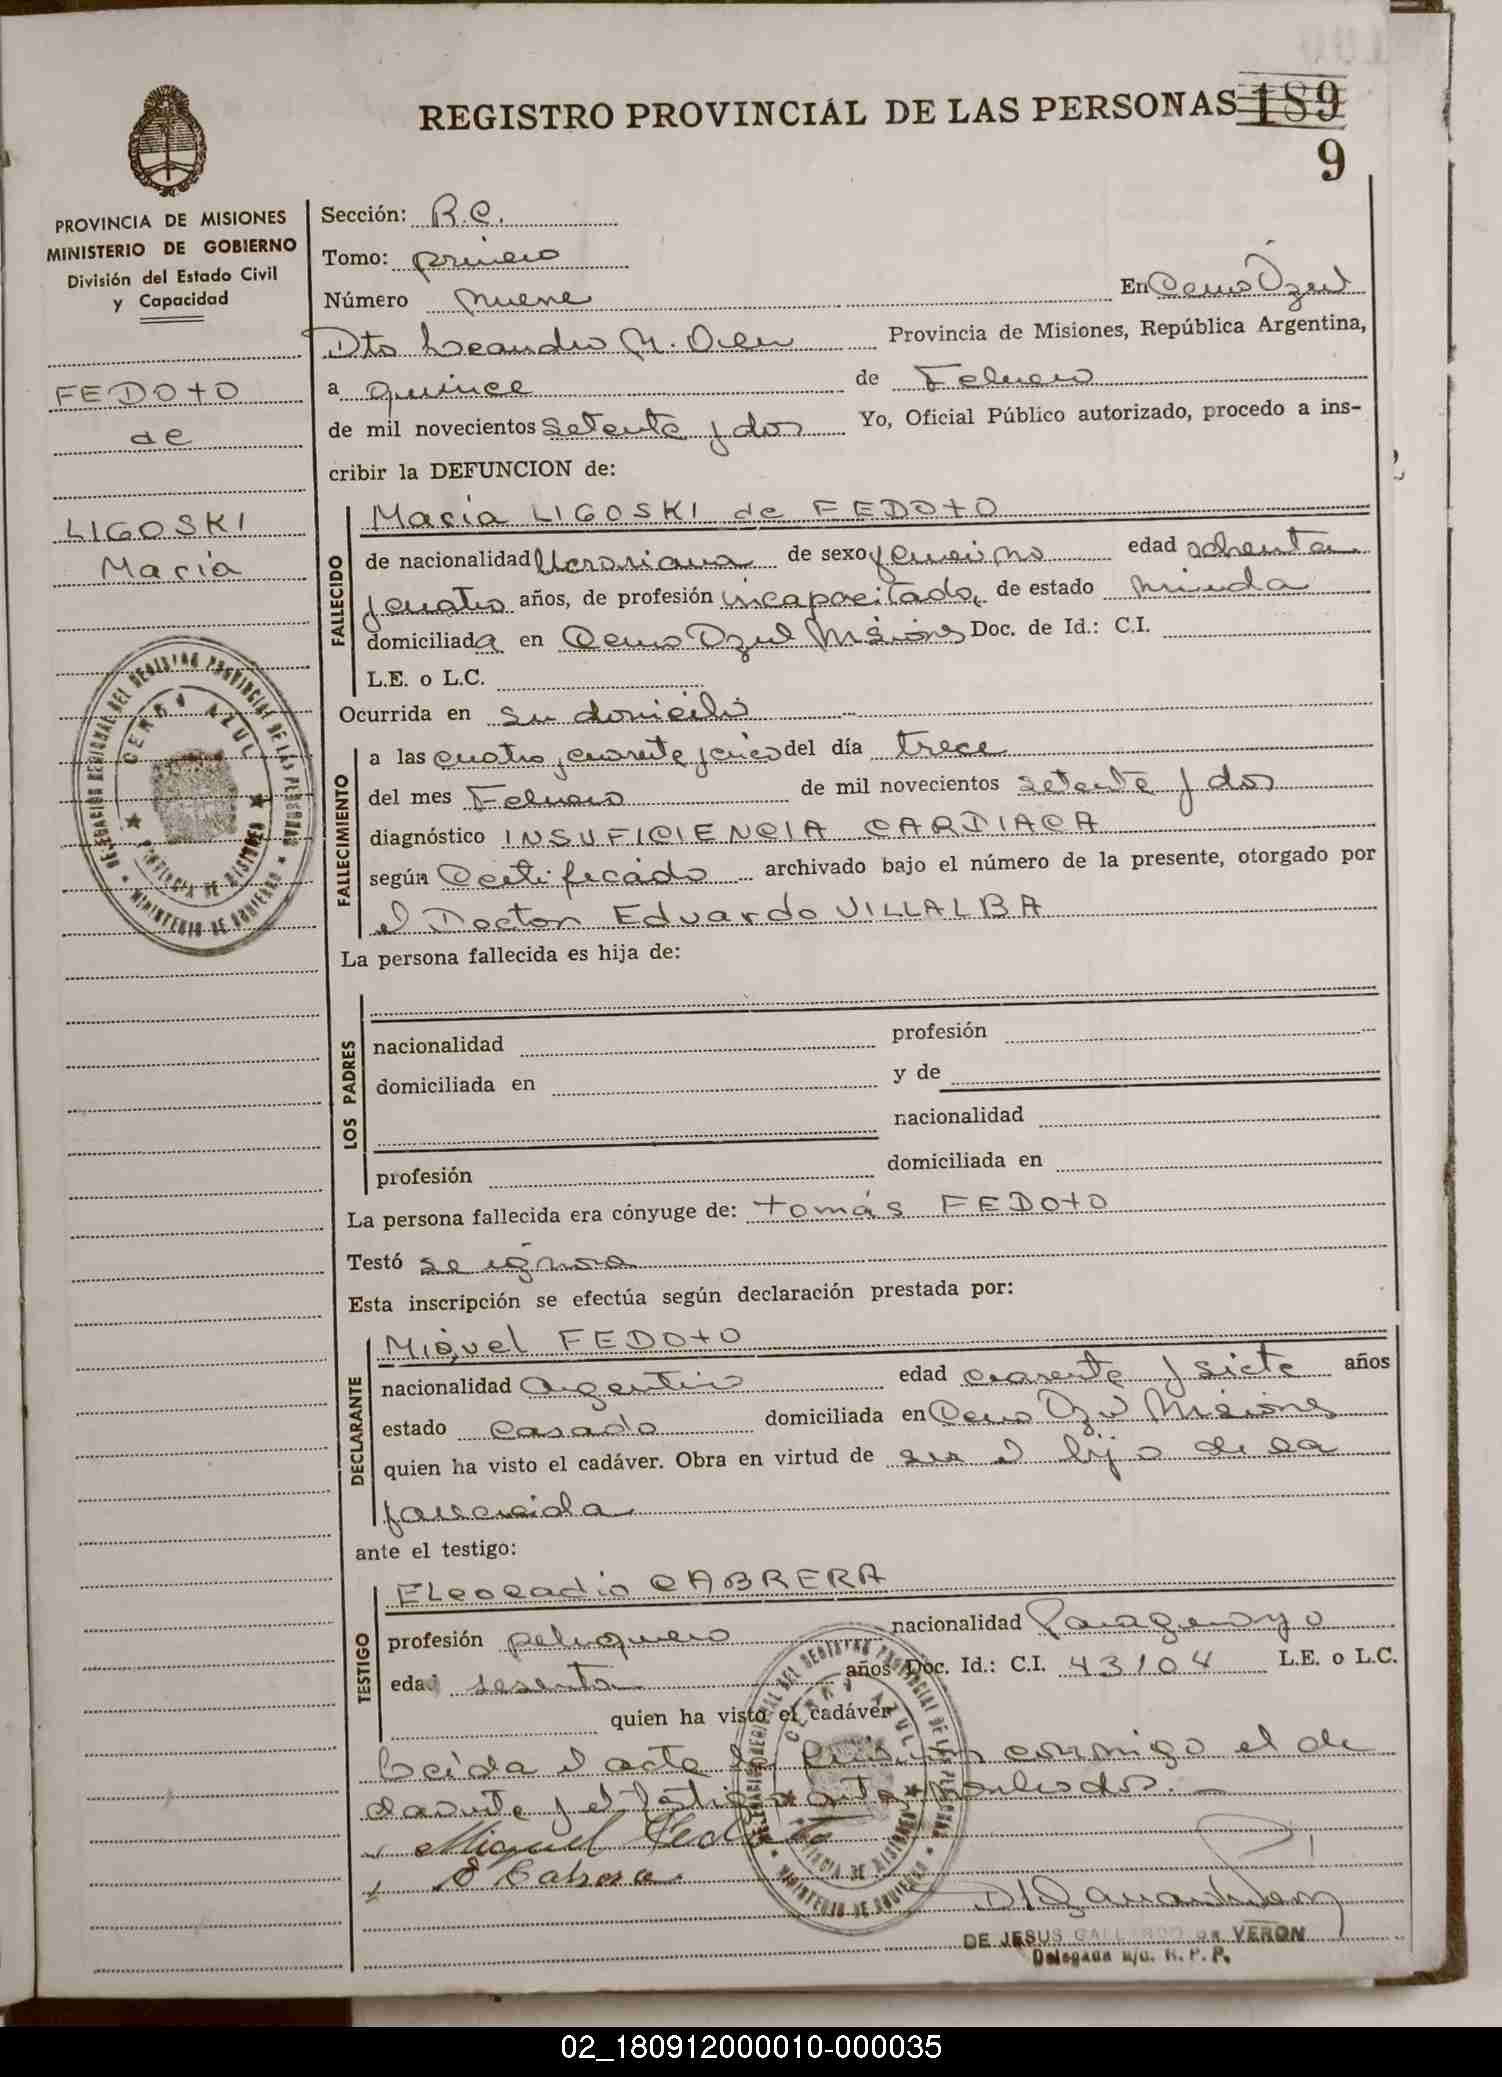 REGISTRO PROVINCIAL DE LAS PERSONAS 189
9
PROVINCIA DE MISIONES
MINISTERIO DE GOBIERNO
División del Estado Civil
y Capacidad
FEDOTO
de
LIGOSKI
María
DELEGACION REGIONAL DEL REGISTRO PROVINCIAL DE LAS PERSONAS
CERRO AZUL
PROVINCIA DE MISIONES
MINISTERIO DE GOBIERNO
Sección: R.C.
Tomo: primero
Número nueve En Cerro Azul
Dto Leandro N. Alem Provincia de Misiones, República Argentina,
a quince de Febrero
de mil novecientos setenta y dos Yo, Oficial Público autorizado, procedo a ins-
cribir la DEFUNCION de:
FALLECIDO
María LIGOSKI de FEDOTO
de nacionalidad Ucraniana de sexo femenino edad ochenta
y cuatro años, de profesión incapacitada, de estado viuda
domiciliada en Cerro Azul Misiones Doc. de Id.: C.I.
L.E. o L.C.
Ocurrida en su domicilio
FALLECIMIENTO
a las cuatro y cuarenta y cinco del día trece
del mes Febrero de mil novecientos setenta y dos
diagnóstico INSUFICIENCIA CARDIACA
según Certificado archivado bajo el número de la presente, otorgado por
el Doctor Eduardo VILLALBA
La persona fallecida es hija de:
LOS PADRES
nacionalidad profesión
domiciliada en y de
nacionalidad
profesión domiciliada en
La persona fallecida era cónyuge de: Tomás FEDOTO
Testó se ignora
Esta inscripción se efectúa según declaración prestada por:
DECLARANTE
Miguel FEDOTO
nacionalidad argentino edad cuarenta y siete años
estado casado domiciliada en Cerro Azul Misiones
quien ha visto el cadáver. Obra en virtud de ser el hijo de la
fallecida
ante el testigo:
TESTIGO
Eleoeadio CABRERA
profesión peluquero nacionalidad Paraguayo
edad sesenta años Doc. Id.: C.I. 43104 L.E. o L.C.
quien ha visto el cadáver
Leída el acta la firman conmigo el de
clarante y el testigo antes nombrados.
Miguel Fedoto
E Cabrera
DELEGACION REGIONAL DEL REGISTRO PROVINCIAL DE LAS PERSONAS
CERRO AZUL
PROVINCIA DE MISIONES
MINISTERIO DE GOBIERNO
DE JESUS GALLARDO DE VERON
Delegada a/c. R. P. P.
02_180912000010-000035